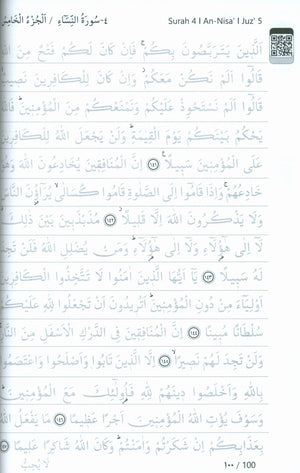 ٤-سُورَةُ النِّسَاءِ / اَلْجُزْءُ الْخَامِسُ Surah 4 I An-Nisa' I Juz' 5
اَلَّذِينَ يَتَرَبَّصُونَ بِكُمْ فَإِنْ كَانَ لَكُمْ فَتْحٌ مِنَ اللهِ
قَالُوا أَلَمْ نَكُنْ مَعَكُمْ وَإِنْ كَانَ لِلْكَافِرِينَ نَصِيبٌ
قَالُوا أَلَمْ نَسْتَحْوِذْ عَلَيْكُمْ وَنَمْنَعْكُمْ مِنَ الْمُؤْمِنِينَ فَاللهُ
يَحْكُمُ بَيْنَكُمْ يَوْمَ الْقِيٰمَةِ وَلَنْ يَجْعَلَ اللهُ لِلْكَافِرِينَ
عَلَى الْمُؤْمِنِينَ سَبِيلًا ١٤١ إِنَّ الْمُنَافِقِينَ يُخَادِعُونَ اللهَ وَهُوَ
خَادِعُهُمْ وَإِذَا قَامُوا إِلَى الصَّلٰوةِ قَامُوا كُسَالٰى يُرَآؤُنَ النَّاسَ
وَلَا يَذْكُرُونَ اللهَ إِلَّا قَلِيلًا ١٤٢ مُذَبْذَبِينَ بَيْنَ ذٰلِكَ
لَا إِلٰى هٰؤُلَاءِ وَلَا إِلٰى هٰؤُلَاءِ وَمَنْ يُضْلِلِ اللهُ فَلَنْ تَجِدَ
لَهُ سَبِيلًا ١٤٣ يَا أَيُّهَا الَّذِينَ اٰمَنُوا لَا تَتَّخِذُوا الْكَافِرِينَ
أَوْلِيَاءَ مِنْ دُونِ الْمُؤْمِنِينَ أَتُرِيدُونَ أَنْ تَجْعَلُوا لِلهِ عَلَيْكُمْ
سُلْطَانًا مُبِينًا ١٤٤ إِنَّ الْمُنَافِقِينَ فِي الدَّرْكِ الْأَسْفَلِ مِنَ النَّارِ
وَلَنْ تَجِدَ لَهُمْ نَصِيرًا ١٤٥ إِلَّا الَّذِينَ تَابُوا وَأَصْلَحُوا وَاعْتَصَمُوا
بِاللهِ وَأَخْلَصُوا دِينَهُمْ لِلهِ فَأُولٰئِكَ مَعَ الْمُؤْمِنِينَ
وَسَوْفَ يُؤْتِ اللهُ الْمُؤْمِنِينَ أَجْرًا عَظِيمًا ١٤٦ مَا يَفْعَلُ اللهُ
بِعَذَابِكُمْ إِنْ شَكَرْتُمْ وَاٰمَنْتُمْ وَكَانَ اللهُ شَاكِرًا عَلِيمًا
لَا يُحِبُّ
١٠٠ / 100